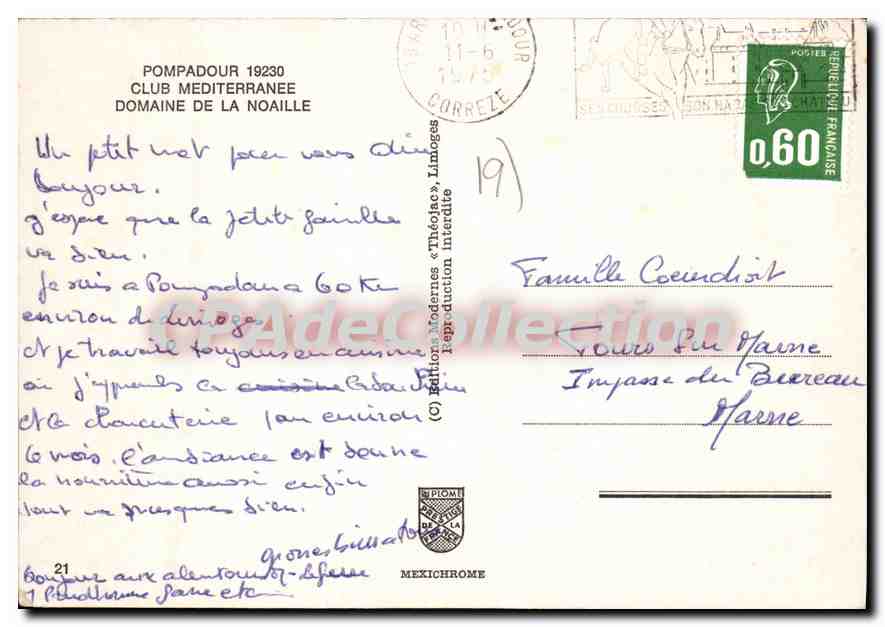 POMPADOUR 19230
CLUB MEDITERRANEE
DOMAINE DE LA NOAILLE
Un ptit mot pour vous dire
bonjour.
J'espere que la petite famille
va bien.
Je suis a Pompadour a 60 Km
environ de Limoges
et je travaille toujours en cuisine
où j'apprends la cuisine
et la charcuterie pour environ
6 mois. l'ambiance est bonne
la nourriture aussi enfin
tout va presques bien.
grosses bises a tous
Bonjour aux alentours
21
POMPADOUR
11-6
CORREZE
SES COURSES SON HARAS CHATEAU
POSTES
REPUBLIQUE FRANÇAISE
0,60
19)
(C) Editions Modernes «Théojac», Limoges
Reproduction interdite
Famille
Tours sur Marne
Impasse du Bureau
Marne
DIPLOME
PRESTIGE
DE LA
FRANCE
MEXICHROME
CPAdeCollection